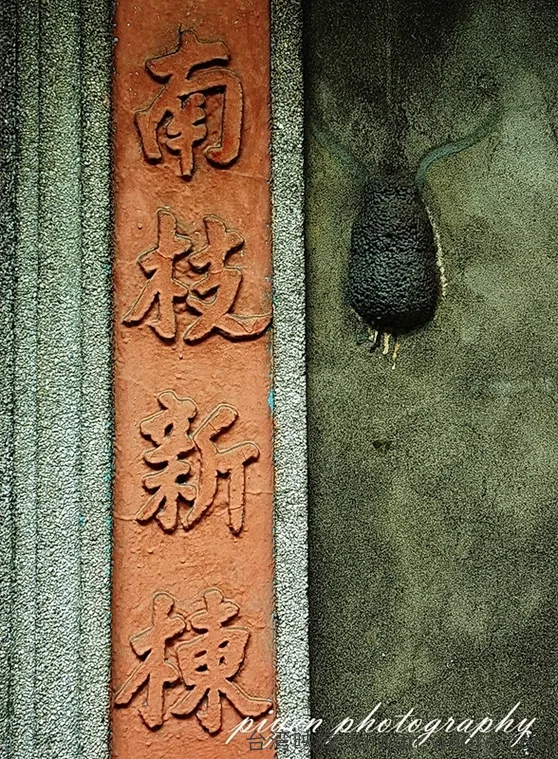 南枝新棟
pigen photography